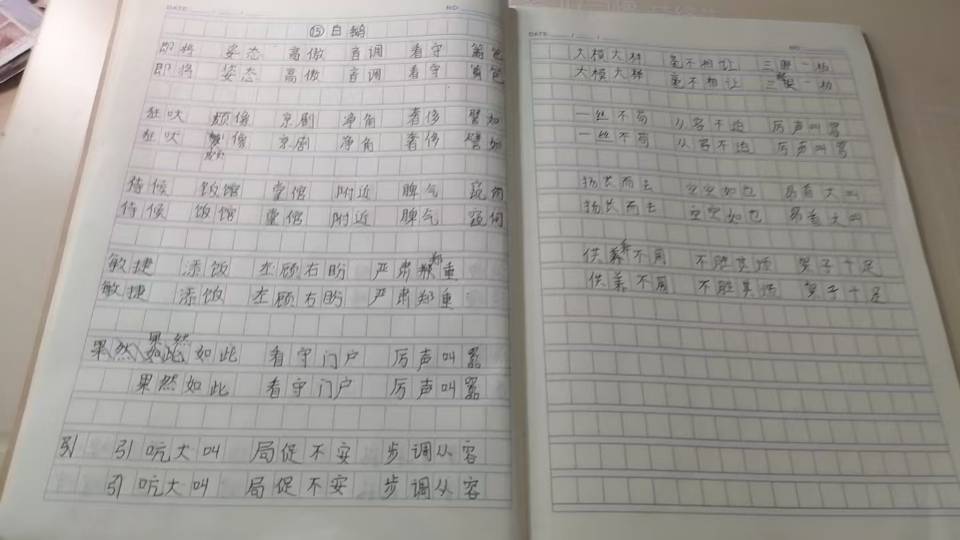 DATE
NO
⑮ 白鹅
即将 姿态 高傲 音调 看守
即将 姿态 高傲 音调 看守
狂吠 颇像 京剧 净角 奢侈 譬如
狂吠 像 京剧 净角 奢侈 譬如
侍候 饭馆 堂倌 附近 脾气 窥伺
侍候 饭馆 堂倌 附近 脾气 窥伺
敏捷 添饭 左顾右盼 严肃郑重
敏捷 添饭 左顾右盼 严肃郑重
果然
果然如此如此 看守门户 厉声叫嚣
果然如此 看守门户 厉声叫嚣
引 引吭大叫 局促不安 步调从容
引吭大叫 局促不安 步调从容
DATE
NO
大模大样 毫不相让 三眼一板
大模大样 毫不相让 三眼一板
一丝不苟 从容不迫 厉声叫骂
一丝不苟 从容不迫 厉声叫骂
扬长而去 空空如也 昂首大叫
扬长而去 空空如也 昂首大叫
供养不周 不胜其烦 架子十足
供养不周 不胜其烦 架子十足